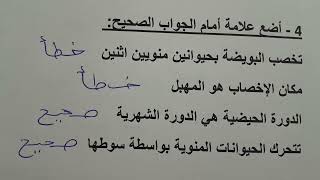 4 - أضع علامة أمام الجواب الصحيح:
تخصب البويضة بحيوانين منويين اثنين خطأ
مكان الإخصاب هو المهبل خطأ
الدورة الحيضية هي الدورة الشهرية صحيح
تتحرك الحيوانات المنوية بواسطة سوطها صحيح